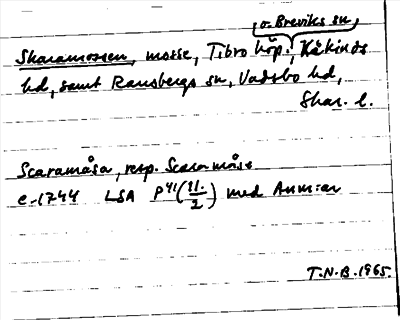 o. Breviks sn,
Skaramossen, mosse, Tibro köp., Kåkinds
hd, samt Ransbergs sn, Vadsbo hd,
Skar. l.
Scaramåsa, resp. Scara måse
c. 1744 LSA P41 (11./2) med Anm:ar
T.N.B. 1965.